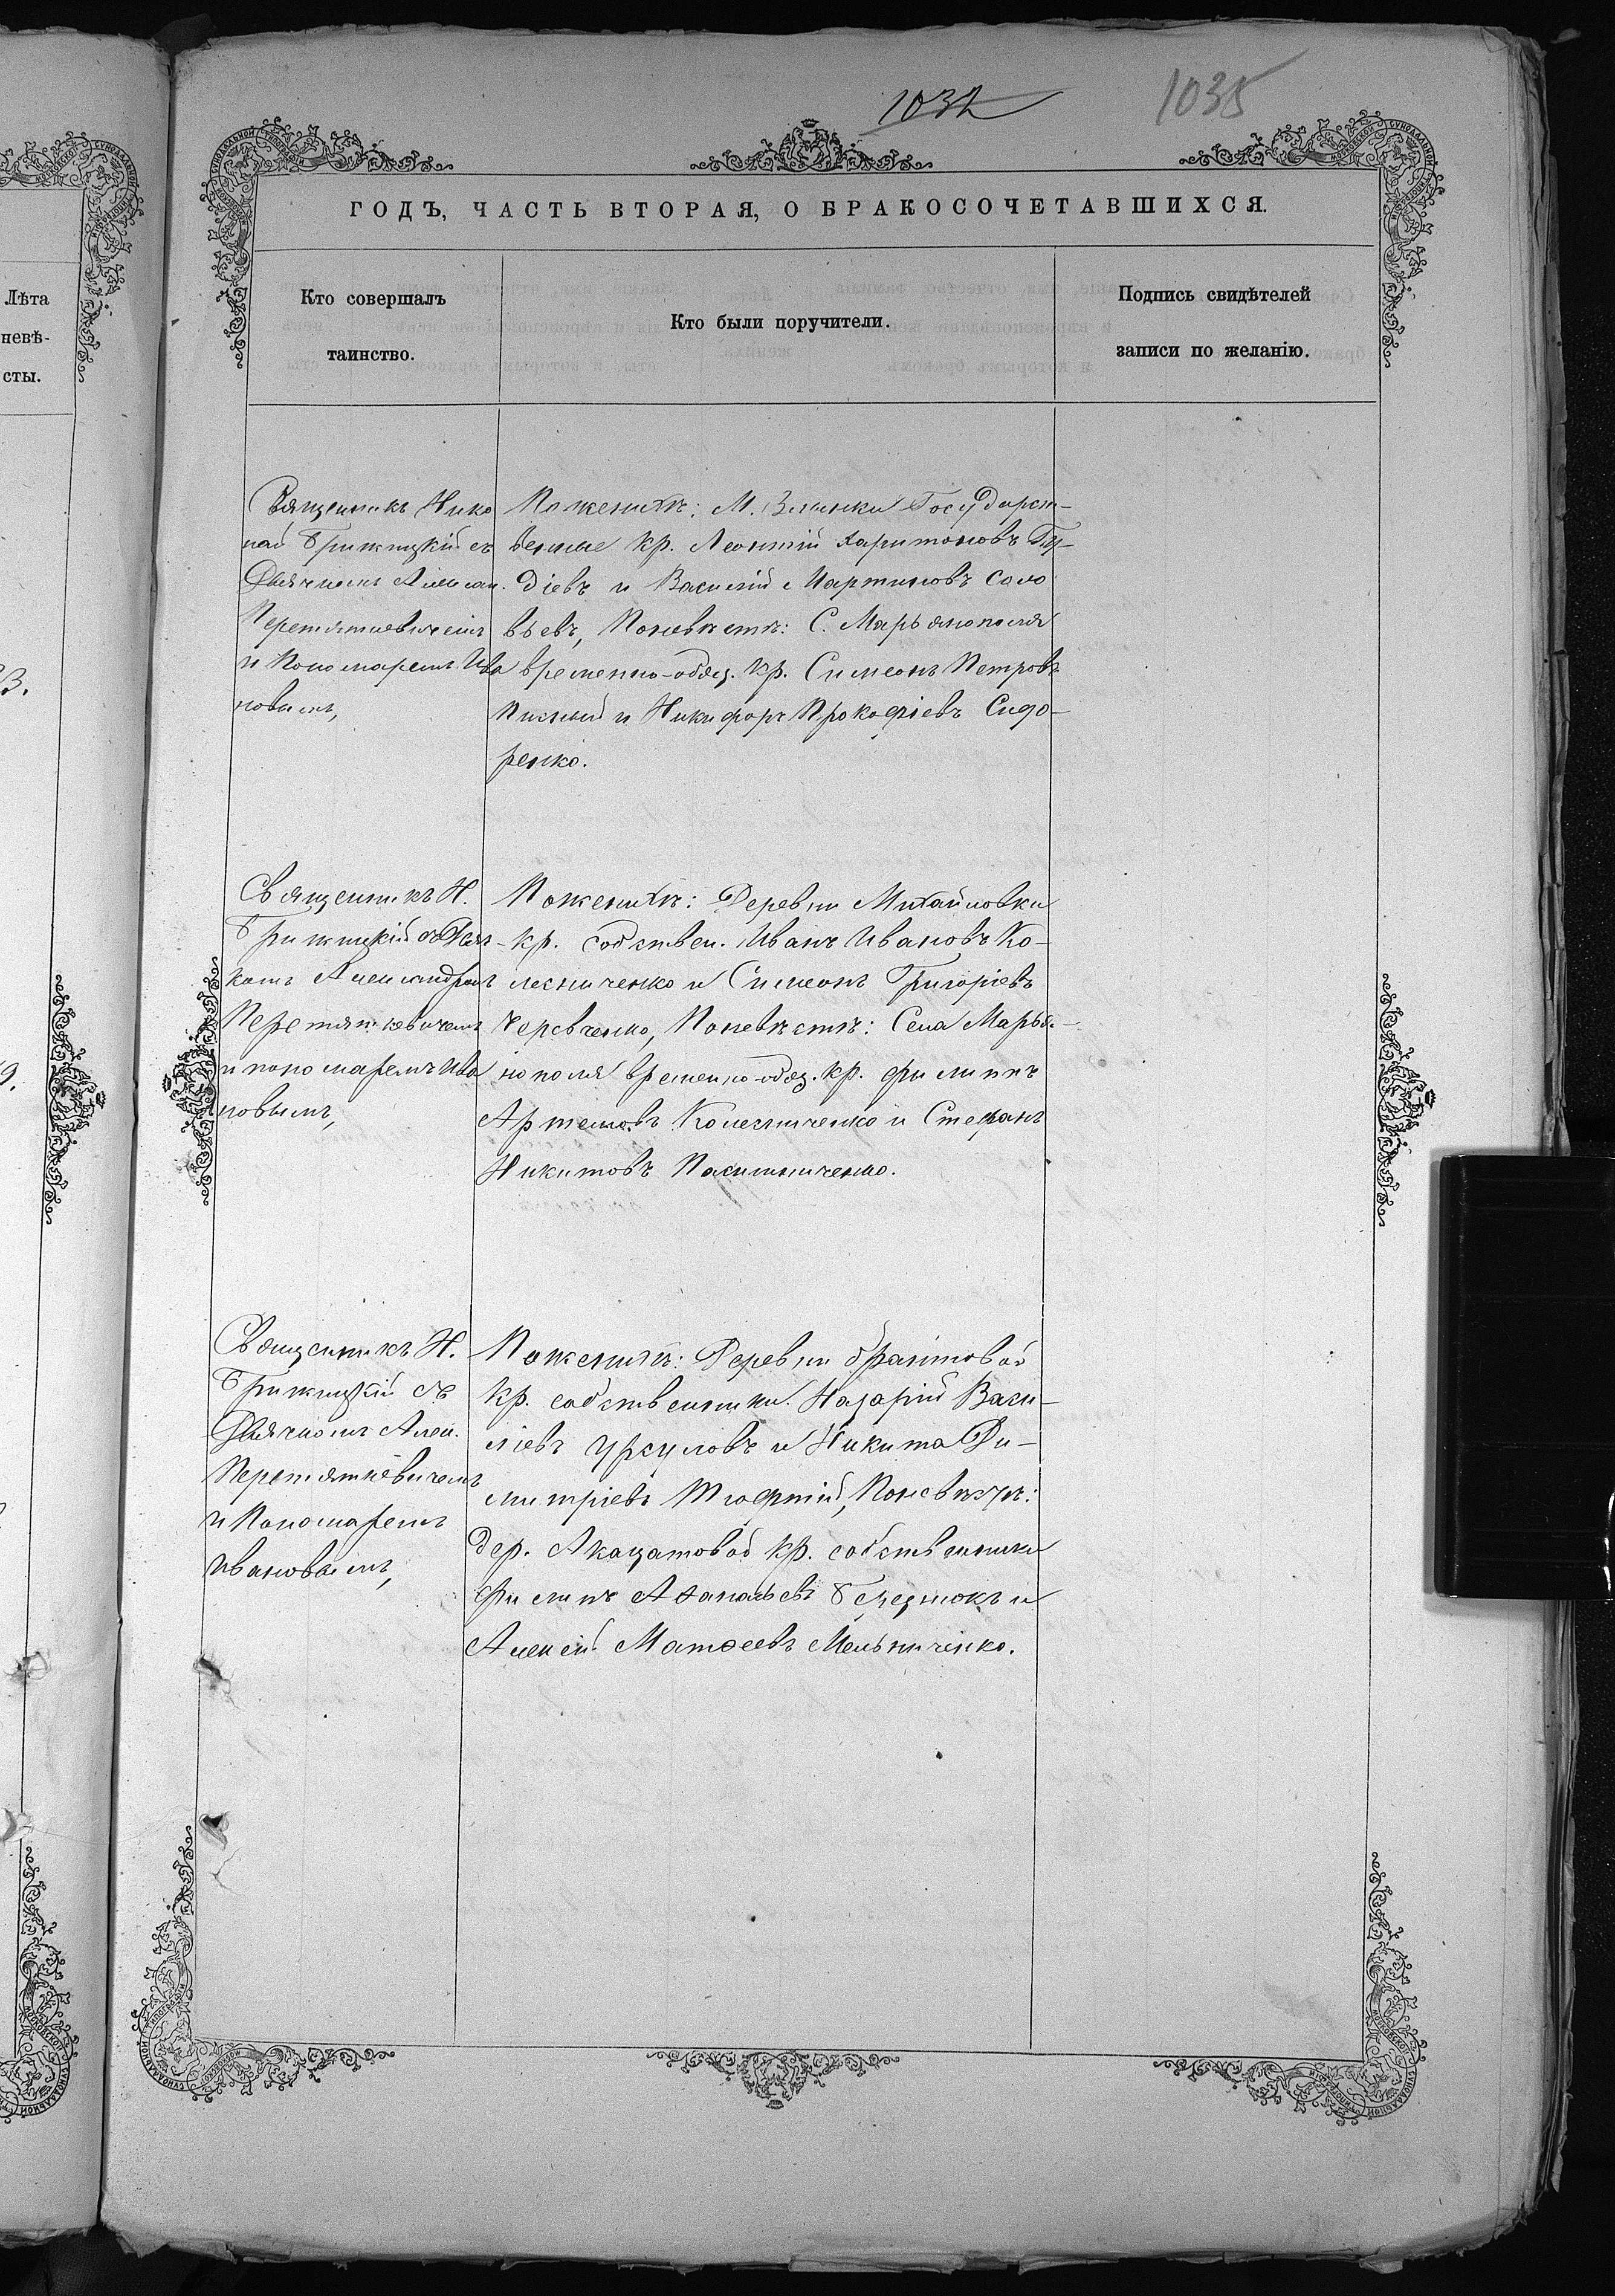 1032
1035
ГОДЪ, ЧАСТЬ ВТОРАЯ, О БРАКОСОЧЕТАВШИХСЯ.
Лѣта
невѣ-
сты.
Кто совершалъ
таинство.
Кто были поручители.
Подпись свидѣтелей
записи по желанію.
Священникъ Нико
лай Брижицкій съ
Дьячкомъ Алексан.
Перетятковичемъ
и Пономаремъ Ива
новымъ,
По женихѣ: М. Злынки Государст-
венные кр. Леонтій Харитоновъ
діевъ и Василій Мартиновъ Соло
вьевъ, По невѣстѣ: С. Марьянополя
временно-обяз. кр. Симеонъ Петровъ
и Никифоръ Прокофіевъ Сидо-
ренко.
Священникъ Н.
Брижицкій съ Дьяч-
комъ Александромъ
Перетятковичемъ
и пономаремъ Ива
новымъ,
По женихѣ: Деревни Михайловки
кр. собствен. Иванъ Ивановъ Ко-
лесниченко и Симеонъ Григоріевъ
Черевченко, По невѣстѣ: Села Марья-
нополя временно-обяз. кр. Филиппъ
Артемовъ Колесниченко и Стефанъ
Никитовъ Пасишниченко.
Священникъ Н.
Брижицкій съ
Дьячкомъ Алек.
Перетятковичемъ
и Пономаремъ
Ивановымъ,
По женихѣ: Деревни
кр. собственники Назарій Васи-
ліевъ Урсуловъ и Никита Ди-
митріевъ По невѣстѣ:
Дер. Акацатовой кр. собственники
Филипъ Аѳанасьевъ и
Алексій Матѳеевъ Мельниченко.
3.
9.